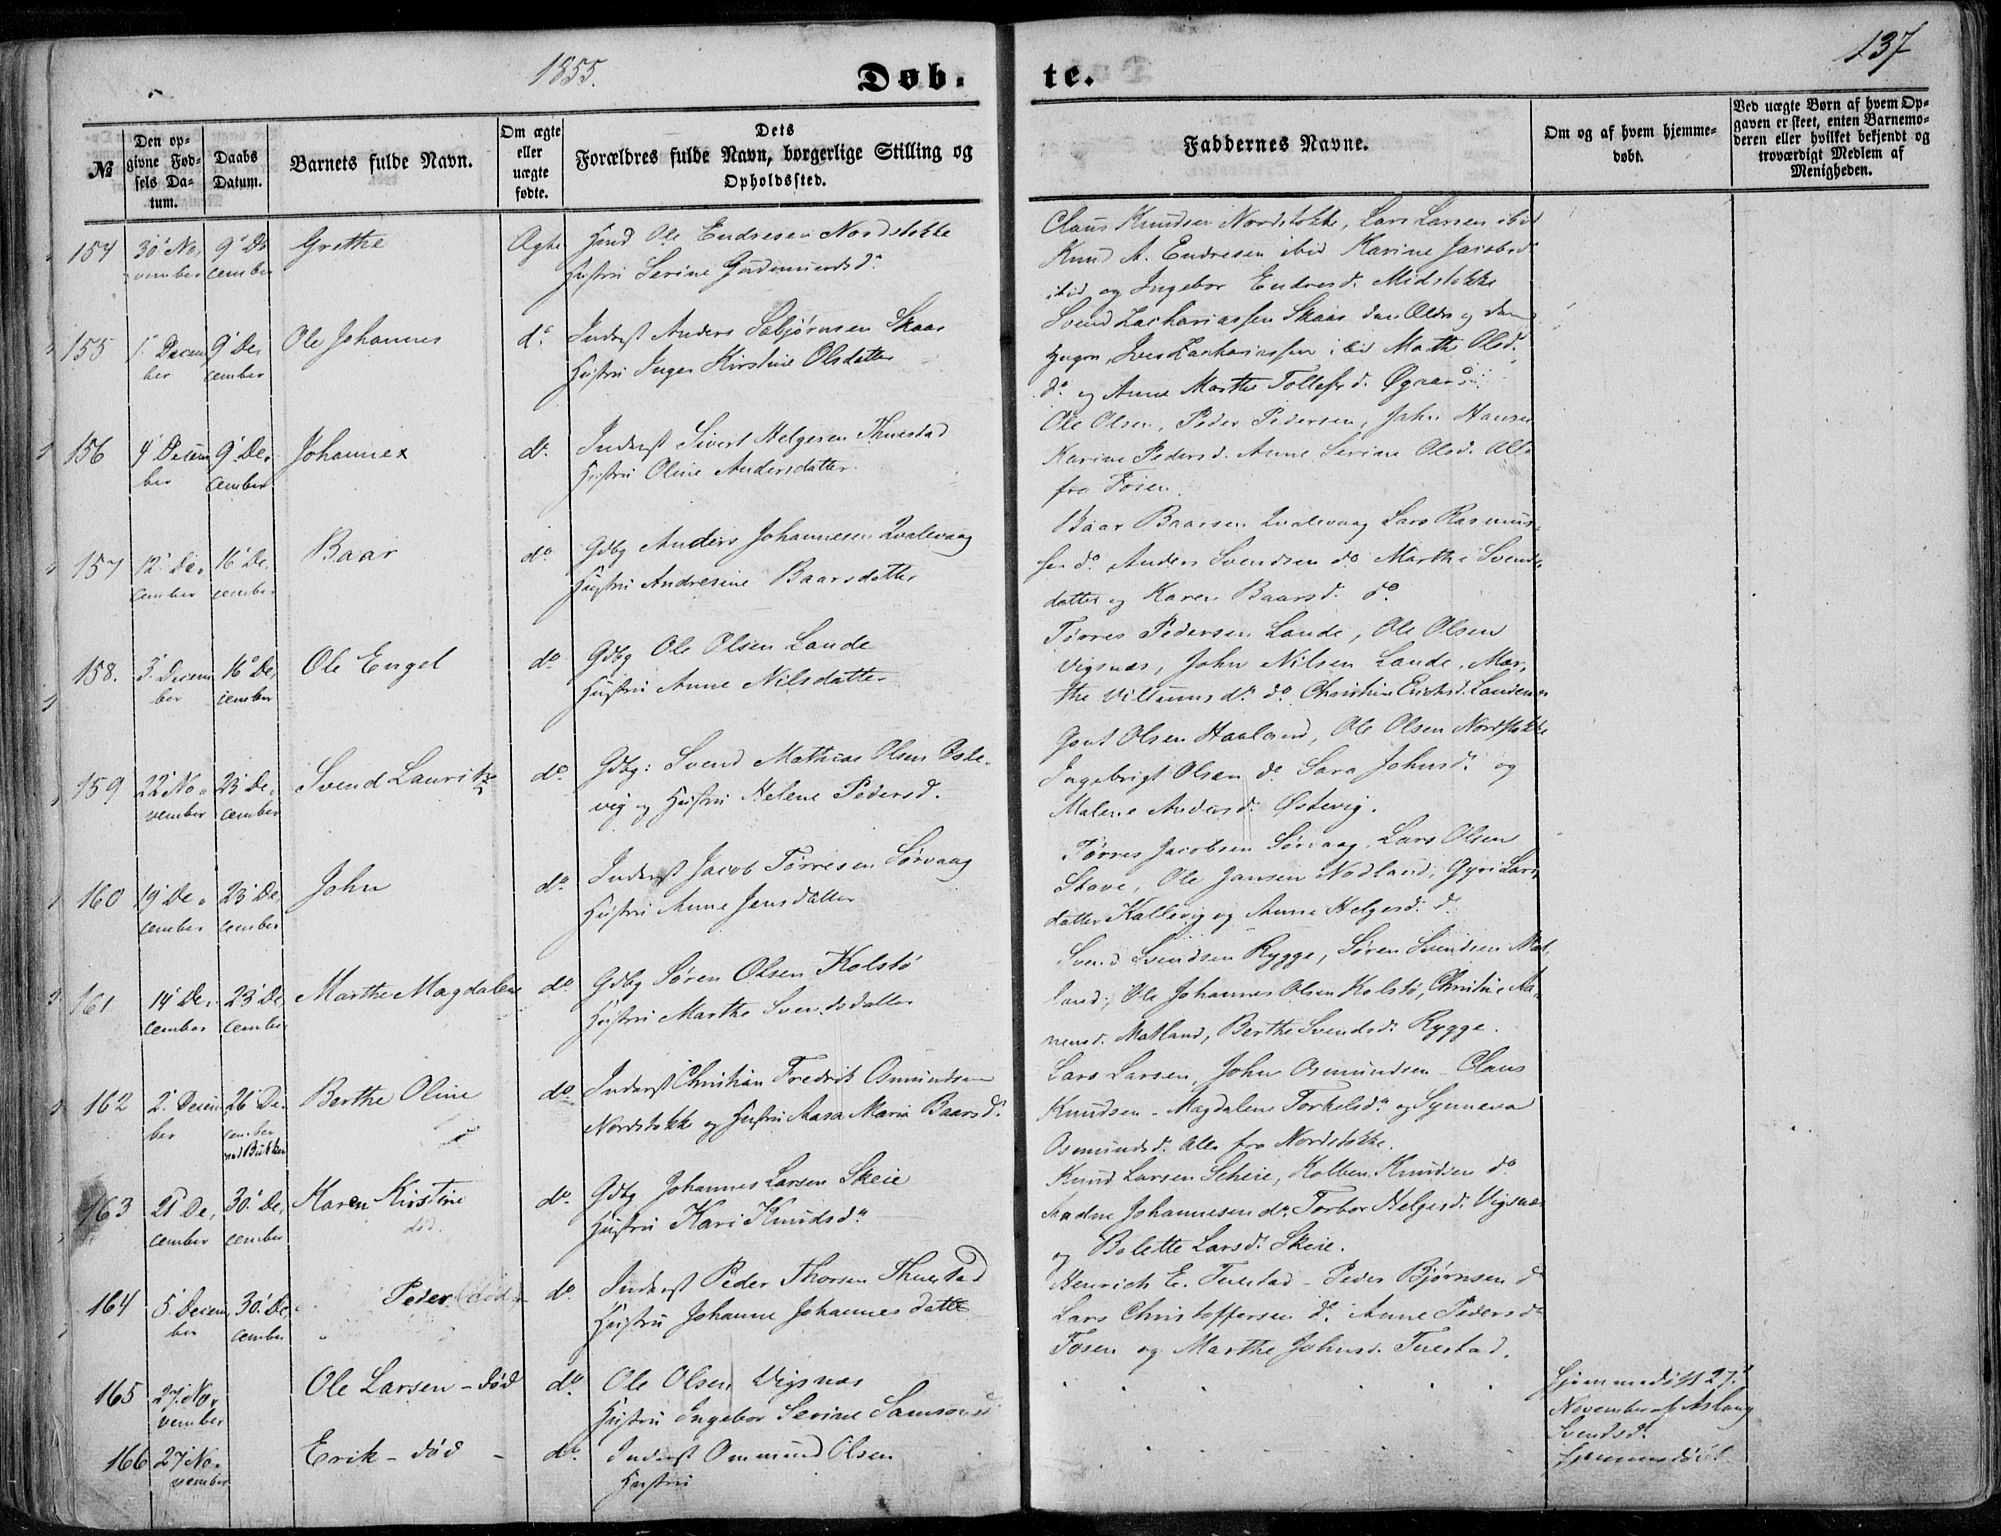 1855.
Døb-
te.
137
№
Den op-
givne Fød-
sels Da-
tum.
Daabs
Datum.
Barnets fulde Navn.
Om ægte
eller
uægte
fødte.
Dets
Forældres fulde Navn, borgerlige Stilling og
Opholdssted.
Faddernes Navne.
Om og af hvem hjemme-
døbt.
Ved uægte Børn af hvem Op-
gaven er skeet, enten Barnemo-
deren eller hvilket bekjendt og
troværdigt Medlem af
Menigheden.
154
30' No,
vember
9' De
cember
Grethe
Ægte
Ole Endresen Nordstokke
Hustru Serine Gudmundsdr.
Claus Knudsen Nordstokke, Lars Larsen ibid
Knud A. Endresen ibid Karine Jacobsd
ibid og Ingebor Endresd. Midstokke
155
1' Decem
ber
9' De,
cember
Ole Johannes
do.
Inderst Anders Sebjørnsen Skaar
Hustru Inger Kirstine Olsdatter
Svend Zachariassen Skaar den Ældre og den
Yngre, Iver Zachariassen ibid Marthe Olsd.
do og Anne Marthe Tollefsd. Øgaard
156
4' Decem
ber
9' De,
cember
Johannes
do.
Inderst Sivert Helgesen Thuestad
Hustru Oline Andersdatter.
Ole Olsen, Peder Pedersen, John Hansen
Karine Pedersd. Anne Serine Olsd. Alle
fra Fosen.
157
12' De,
cember
16' De,
cember
Baar
do.
Gdbg Anders Johannesen Qvalevaag
Hustru Andresine Baarsdatter
Baar Baarsen Qvalevaag Lars Rasmus-
sen do Anders Svendsen do Marthe Svends
datter og Karen Baarsd. do.
158.
3' Decem
ber
16' De,
cember
Ole Engel
do
Gdbg Ole Olsen Lande
Hustru Anne Nilsdatter
Tørres Pedersen Lande, Ole Olsen
Vigsnæs, John Nilsen Lande, Mar,
the Villumsdr. do Christine Eriksd. Landenæs
159
22' No,
vember
23' De,
cember
Svend Lauritz
do.
Gdbg: Svend Mathias Olsen Øste-
vig og Hustru Helene Pedersd.
Gout Olsen Haaland, Ole Olsen Nordstokke
Ingebrigt Olsen do Sara Johnsd. og
Malene Andersd. Østevig.
160
19' De,
cember
23' De,
cember
John
do
Inderst Jacob Tørresen Sørvaag
Hustru Anne Jensdatter
Tørres Jacobsen Sørvaag, Lars Olsen
Stave, Ole Jansen Nodland, Gyri Lars,
datter Kallevig og Anne Helgesd. do.
161
14' De,
cember
23' De,
cember
Marthe Magdalene
do
Gdbg Søren Olsen Kolstø
Hustru Marthe Svendsdatter
Svend Svendsen Rygge, Søren Svendsen Mat,
land, Ole Johannes Olsen Kolstø, Christine Mo,
nensd. Matland, Berthe Svendsd. Rygge.
162
2' Decem
ber
26' De,
cember
ved Bukken
Berthe Oline
do
Inderst Christian Fredrik Osmundsen
Nordstokke og Hustru Aasa Maria Baarsd.
Lars Larsen, John Osmundsen - Claus
Knudsen - Magdalene Torkelsdr. og Synneva
Osmundsd. Alle fra Nordstokke.
163
21' De,
cember
30' De,
cember
Karen Kirstine
død.
do.
Gdbg Johannes Larsen Skeie
Hustru Kari Knudsdr.
Knud Larsen Scheie, Kolben Knudsen do
Johannesen do. Torbor Helgesd. Vigsnæs
og Bolette Larsd. Skeie.
164
5' Decem
ber
30' De,
cember
Peder (død)
do.
Inderst Peder Thorsen Thuestad
Hustru Johanne Johannesdatter
Henrich E. Tuestad - Peder Bjørnsen do
Lars Christoffersen do. Anne Pedersd
Fosen og Marthe Johnsd. Tuestad.
165
27' No,
vember
Ole Larsen - død
do.
Ole Olsen Vigsnæs
Hustru Ingebor Serine Samsonsd
Hjemmedøbt 27'
November af Aslaug
Svendsd.
166
27' No,
vember
Erik - død -
do.
Inderst Ommund Olsen
Hustru
Hjemmedøbt